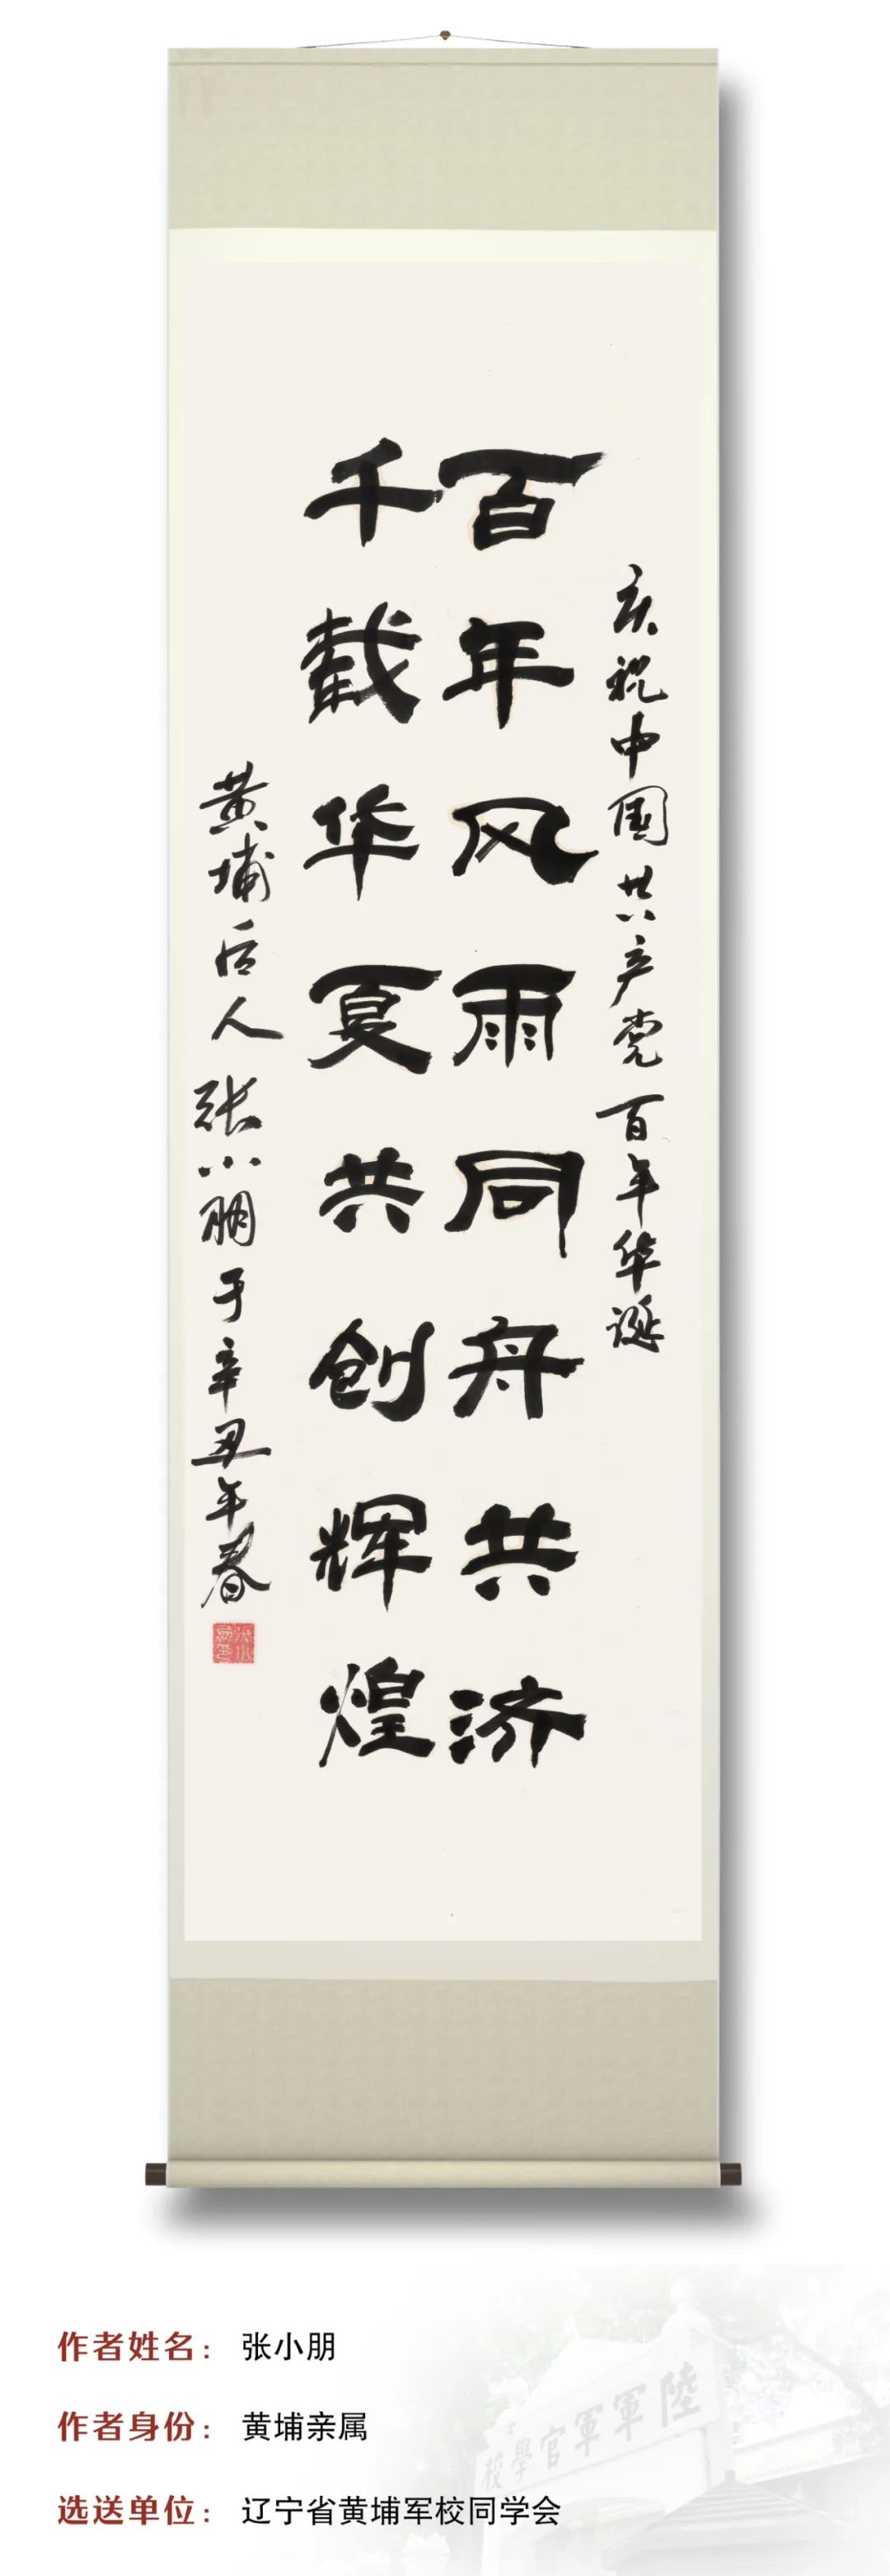 庆祝中国共产党百年华诞
百年风雨同舟共济
千载华夏共创辉煌
黄埔后人张小朋于辛丑年春
作者姓名：张小朋
作者身份：黄埔亲属
选送单位：辽宁省黄埔军校同学会
陸軍軍官學校